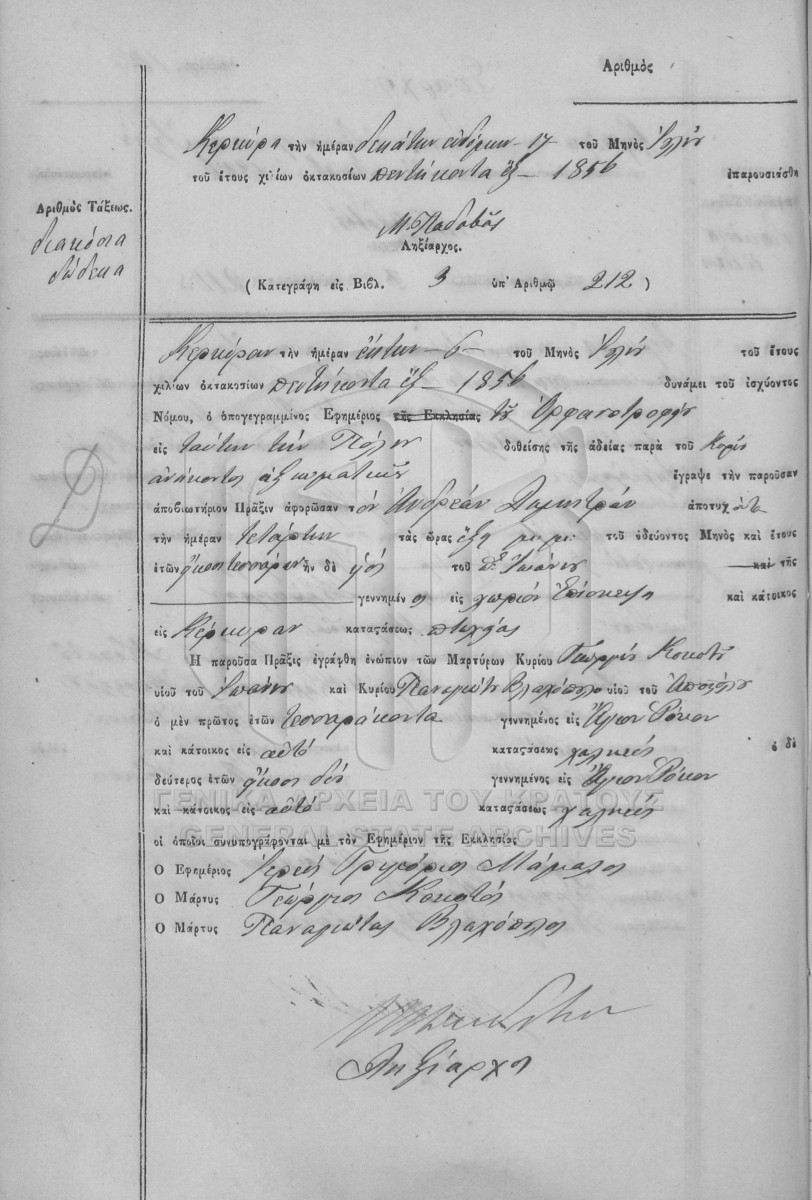 Ἀριθμὸς
Κέρκυρα τὴν ἡμέραν δεκάτην ἑβδόμην - 17 τοῦ Μηνὸς Ἰουλίου
τοῦ ἔτους χιλίων ὀκτακοσίων πεντήκοντα ἓξ - 1856 ἐπαρουσιάσθη
Ἀριθμὸς Τάξεως.
διακόσια
δώδεκα
Μ. Παδοβᾶς
Ληξίαρχος.
( Κατεγράφη εἰς Βιβλ. 3 ὑπ' Ἀριθμῷ 212 )
Κέρκυραν τὴν ἡμέραν ἕκτην - 6 - τοῦ Μηνὸς Ἰουλίου τοῦ ἔτους
χιλίων ὀκτακοσίων πεντήκοντα ἓξ - 1856 δυνάμει τοῦ ἰσχύοντος
Νόμου, ὁ ὑπογεγραμμένος Ἐφημέριος τῆς Ἐκκλησίας τοῦ Ὀρφανοτροφείου
εἰς ταύτην τὴν Πόλιν δοθείσης τῆς ἀδείας παρὰ τοῦ Κυρίου
ἀνήκοντος ἀξιωματικοῦ ἔγραψε τὴν παροῦσαν
ἀποβιωτήριον Πρᾶξιν ἀφορῶσαν τὸν Ἀνδρέαν ἀποτυχόντα
τὴν ἡμέραν τετάρτην τὰς ὥρας ἕξη μ: μ: τοῦ ὁδεύοντος Μηνὸς καὶ ἔτους
ἐτῶν ἤκοσι τεσσάρων ἦν δὲ υἱὸς τοῦ π. Ἰωάννου καὶ τῆς
γεννημένος εἰς χωρίον Ἐπίσκεψη καὶ κάτοικος
εἰς Κέρκυραν καταστάσεως πτωχῆς
Η παροῦσα Πρᾶξις ἐγράφθη ἐνώπιον τῶν Μαρτύρων Κυρίου Γεωργίου Κοκοτοῦ
υἱοῦ τοῦ Ἰωάννου καὶ Κυρίου Παναγιώτου Βλαχόπουλου υἱοῦ τοῦ Ἀποστόλου
ὁ μὲν πρῶτος ἐτῶν τεσσαράκοντα γεννημένος εἰς Ἅγιον Ρόκον
καὶ κάτοικος εἰς αὐτὸ καταστάσεως χαλκεύς ὁ δὲ
δεύτερος ἐτῶν ἤκοσι δύο γεννημένος εἰς Ἅγιον Ρόκον
καὶ κάτοικος εἰς αὐτὸ καταστάσεως χαλκεύς
οἱ ὁποῖοι συνυπογράφονται μὲ τὸν Ἐφημέριον τῆς Ἐκκλησίας
Ο Ἐφημέριος Ἱερεὺς Γρηγόριος Μάμαλος
Ο Μάρτυς Γεώργιος Κοκοτός
Ο Μάρτυς Παναγιώτας Βλαχόπουλος
Ληξίαρχος
Δ
ΓΕΝΙΚΑ ΑΡΧΕΙΑ ΤΟΥ ΚΡΑΤΟΥΣ
GENERAL STATE ARCHIVES